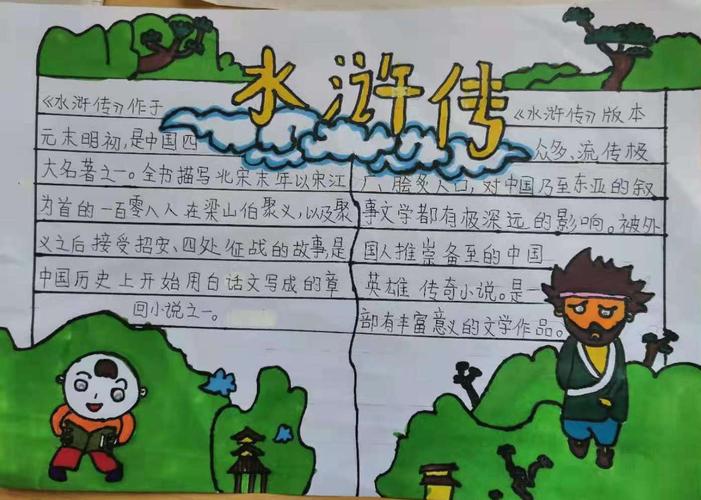 水浒传
《水浒传》作于
元末明初,是中国四
大名著之一。全书描写北宋末年以宋江
为首的一百零八人在梁山伯聚义,以及聚
义之后接受招安、四处征战的故事,是
中国历史上开始用白话文写成的章
回小说之一。
《水浒传》版本
众多、流传极
广、脍炙人口,对中国乃至东亚的叙
事文学都有极深远的影响。被外
国人推崇备至的中国
英雄传奇小说。是一
部有丰富意义的文学作品。